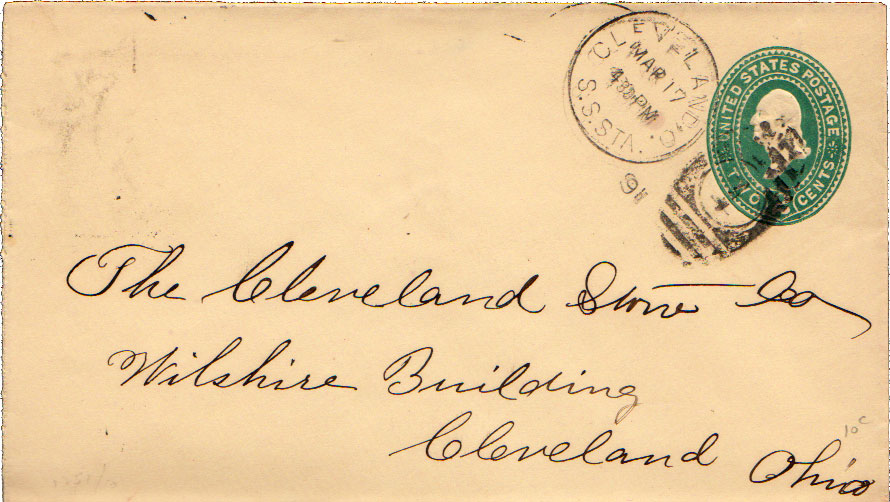 CLEVELAND, O.
MAR 17
4 30 PM
S.S. STA.
91
UNITED STATES POSTAGE
TWO CENTS
The Cleveland Stone Co
Wilshire Building
Cleveland Ohio
10c